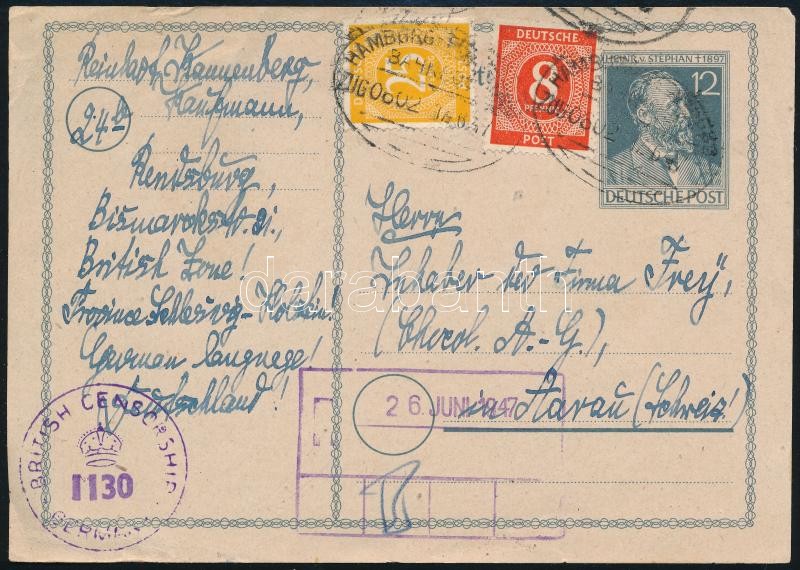 Reinhard Kannenberg,
Kaufmann,
24b
Rendsburg,
Bismarckstr. 21,
British Zone!
Province Schleswig-Holstein!
German language!
Deutschland!
BRITISH CENSORSHIP
1130
GERMANY
25
HAMBURG
DEUTSCHE
8
PFENNIG
POST
HEINR. v. STEPHAN † 1897
12
DEUTSCHE POST
Herrn
Inhaber der Firma Frey,
A.-G.),
in Aarau (Schweiz!)
26. JUNI 1947
darabanth